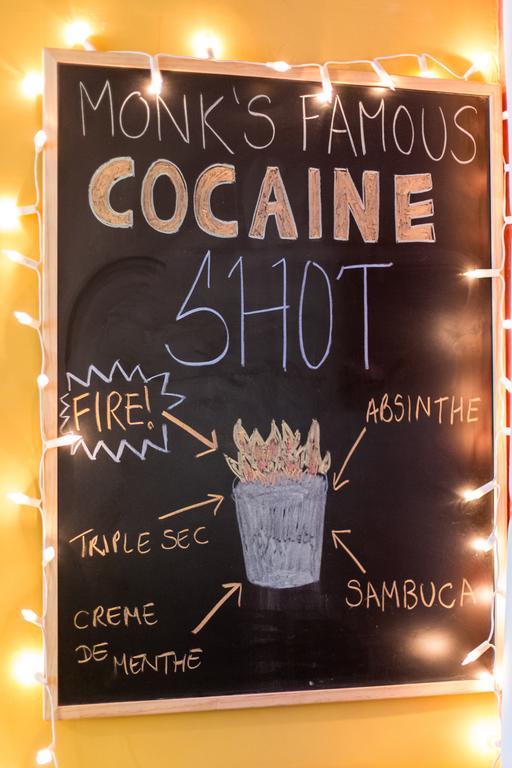 MONK'S FAMOUS
COCAINE
SHOT
FIRE!
ABSINTHE
TRIPLE SEC
SAMBUCA
CREME
DE MENTHE